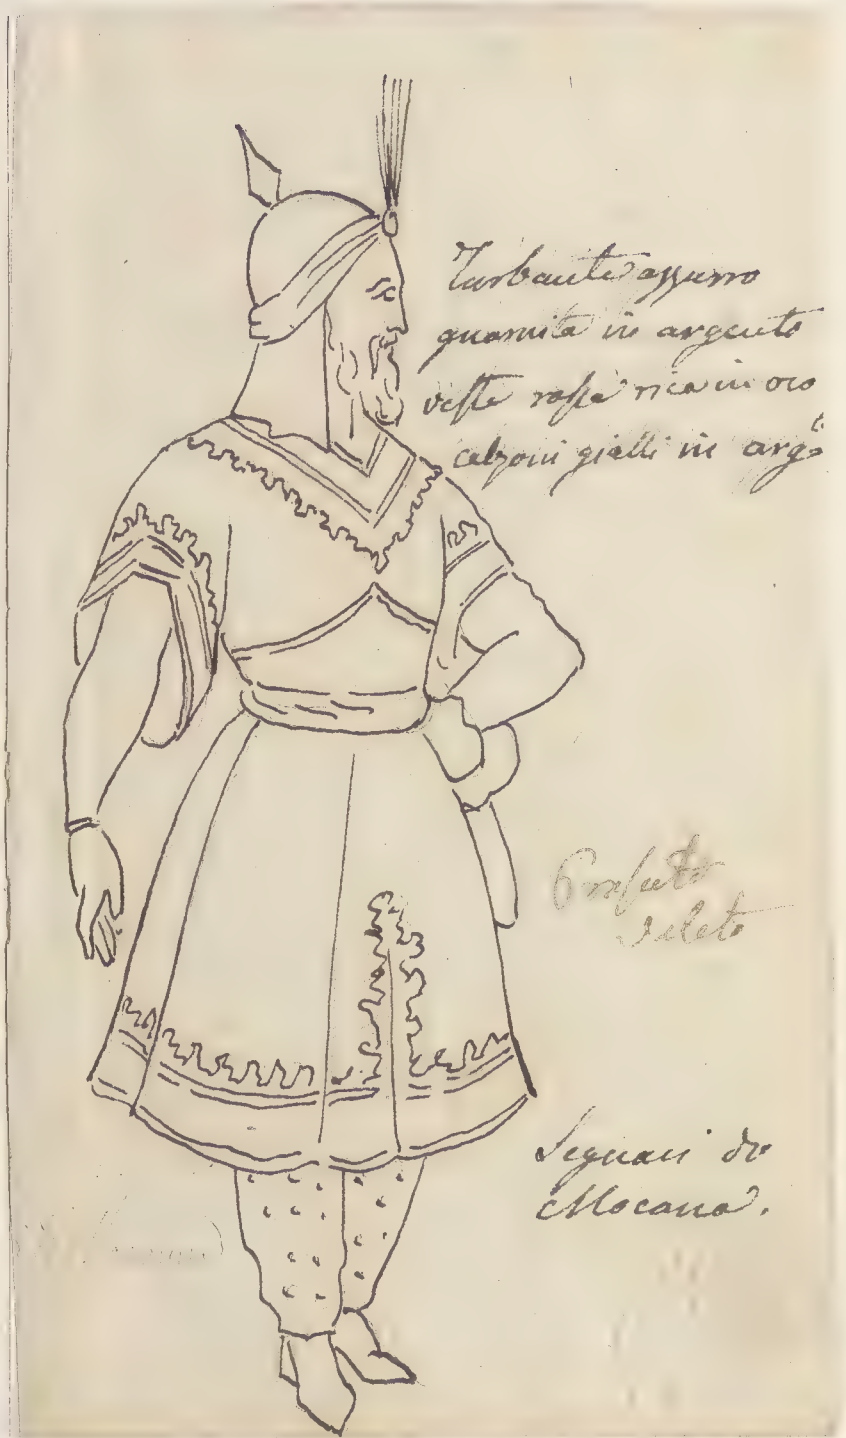 Turbante azzurro
guarnita in argento
veste rossa rica in oro
calzoni gialli in arg.to
Seguaci di
Mocana.